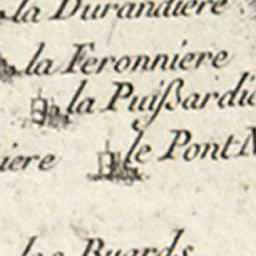 la Durandiere
la Feronniere
la Puißardie
le Pont
iere
Buards